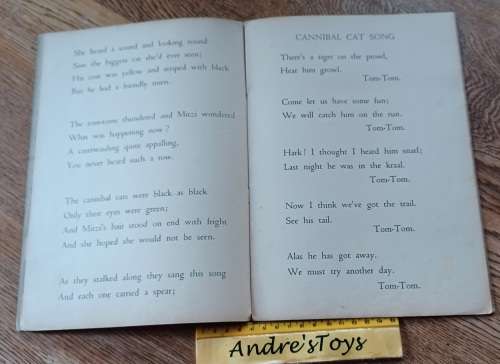 She heard a sound and looking round
Saw the biggest cat she'd ever seen;
His coat was yellow and striped with black
But he had a friendly mien.
The tom-toms thundered and Mitza wondered
What was happening now?
A caterwauling quite appalling,
You never heard such a row.
The cannibal cats were black as black
Only their eyes were green;
And Mitza's hair stood on end with fright
And she hoped she would not be seen.
As they stalked along they sang this song
And each one carried a spear;
CANNIBAL CAT SONG
There's a tiger on the prowl,
Hear him growl.
Tom-Tom.
Come let us have some fun;
We will catch him on the run.
Tom-Tom.
Hark! I thought I heard him snarl;
Last night he was in the kraal.
Tom-Tom.
Now I think we've got the trail.
See his tail.
Tom-Tom.
Alas he has got away.
We must try another day.
Tom-Tom.
Andre'sToys